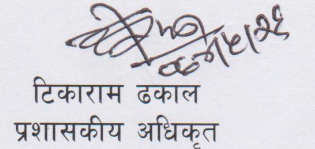 टिकाराम ढकाल
प्रशासकीय अधिकृत